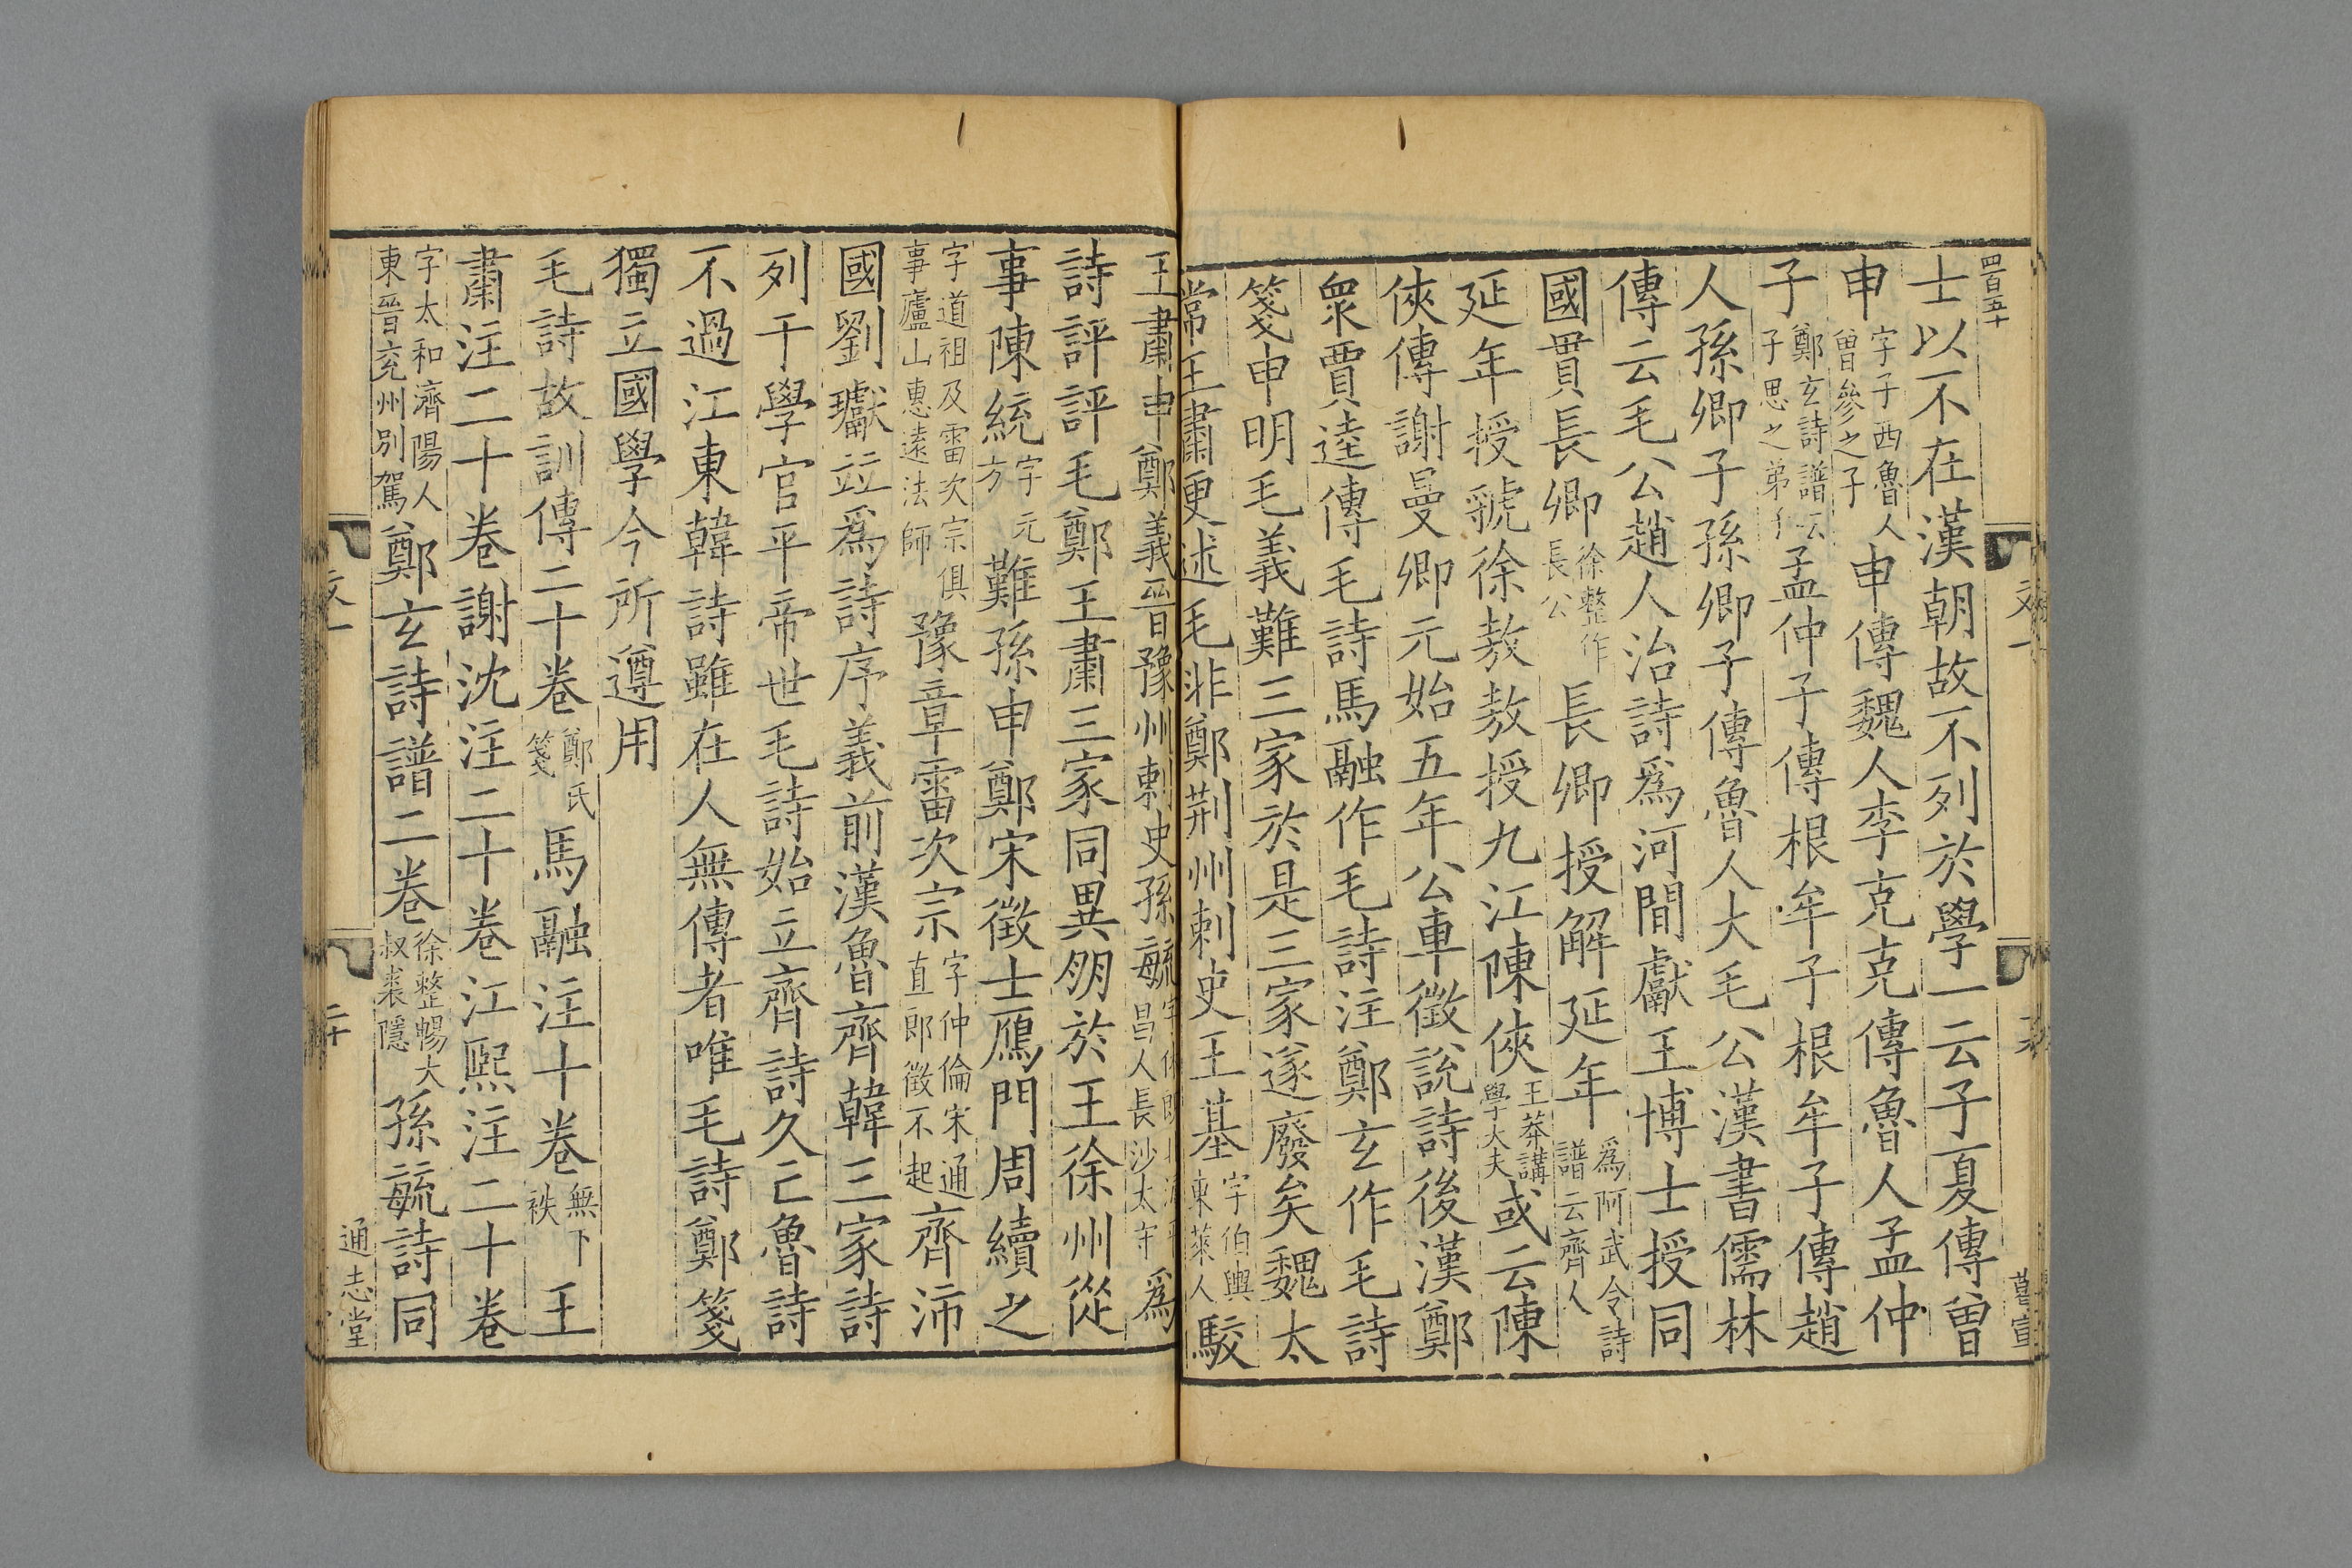 四百五十
士以不在漢朝故不列於學一云子夏傳曾
申字子西魯人曾參之子申傳魏人李克克傳魯人孟仲
子鄭玄詩譜云子思之弟子孟仲子傳根牟子根牟子傳趙
人孫卿子孫卿子傳魯人大毛公漢書儒林
傳云毛公趙人治詩爲河間獻王博士授同
國貫長卿徐整作長公長卿授解延年爲阿武令詩譜云齊人
延年授虢徐敖敖授九江陳俠王莽講學大夫或云陳
俠傳謝曼卿元始五年公車徵說詩後漢鄭
衆賈逵傳毛詩馬融作毛詩注鄭玄作毛詩
箋申明毛義難三家於是三家遂廢矣魏太
常王肅更述毛非鄭荆州刺史王基字伯輿東萊人駮
王肅申鄭義晉豫州刺史孫毓昌人長沙太守爲
詩評評毛鄭王肅三家同異朋於王徐州從
事陳統字元方難孫申鄭宋徵士鴈門周續之
字道祖及雷次宗俱事廬山惠遠法師豫章雷次宗字仲倫宋通直郎徵不起齊沛
國劉瓛竝爲詩序義前漢魯齊韓三家詩
列于學官平帝世毛詩始立齊詩久亡魯詩
不過江東韓詩雖在人無傳者唯毛詩鄭箋
獨立國學今所遵用
毛詩故訓傳二十卷鄭氏箋馬融注十卷無下袟王
肅注二十卷謝沈注二十卷江熙注二十卷
字太和濟陽人東晉兗州別駕鄭玄詩譜二卷徐整暢大叔裘隱孫毓詩同
通志堂